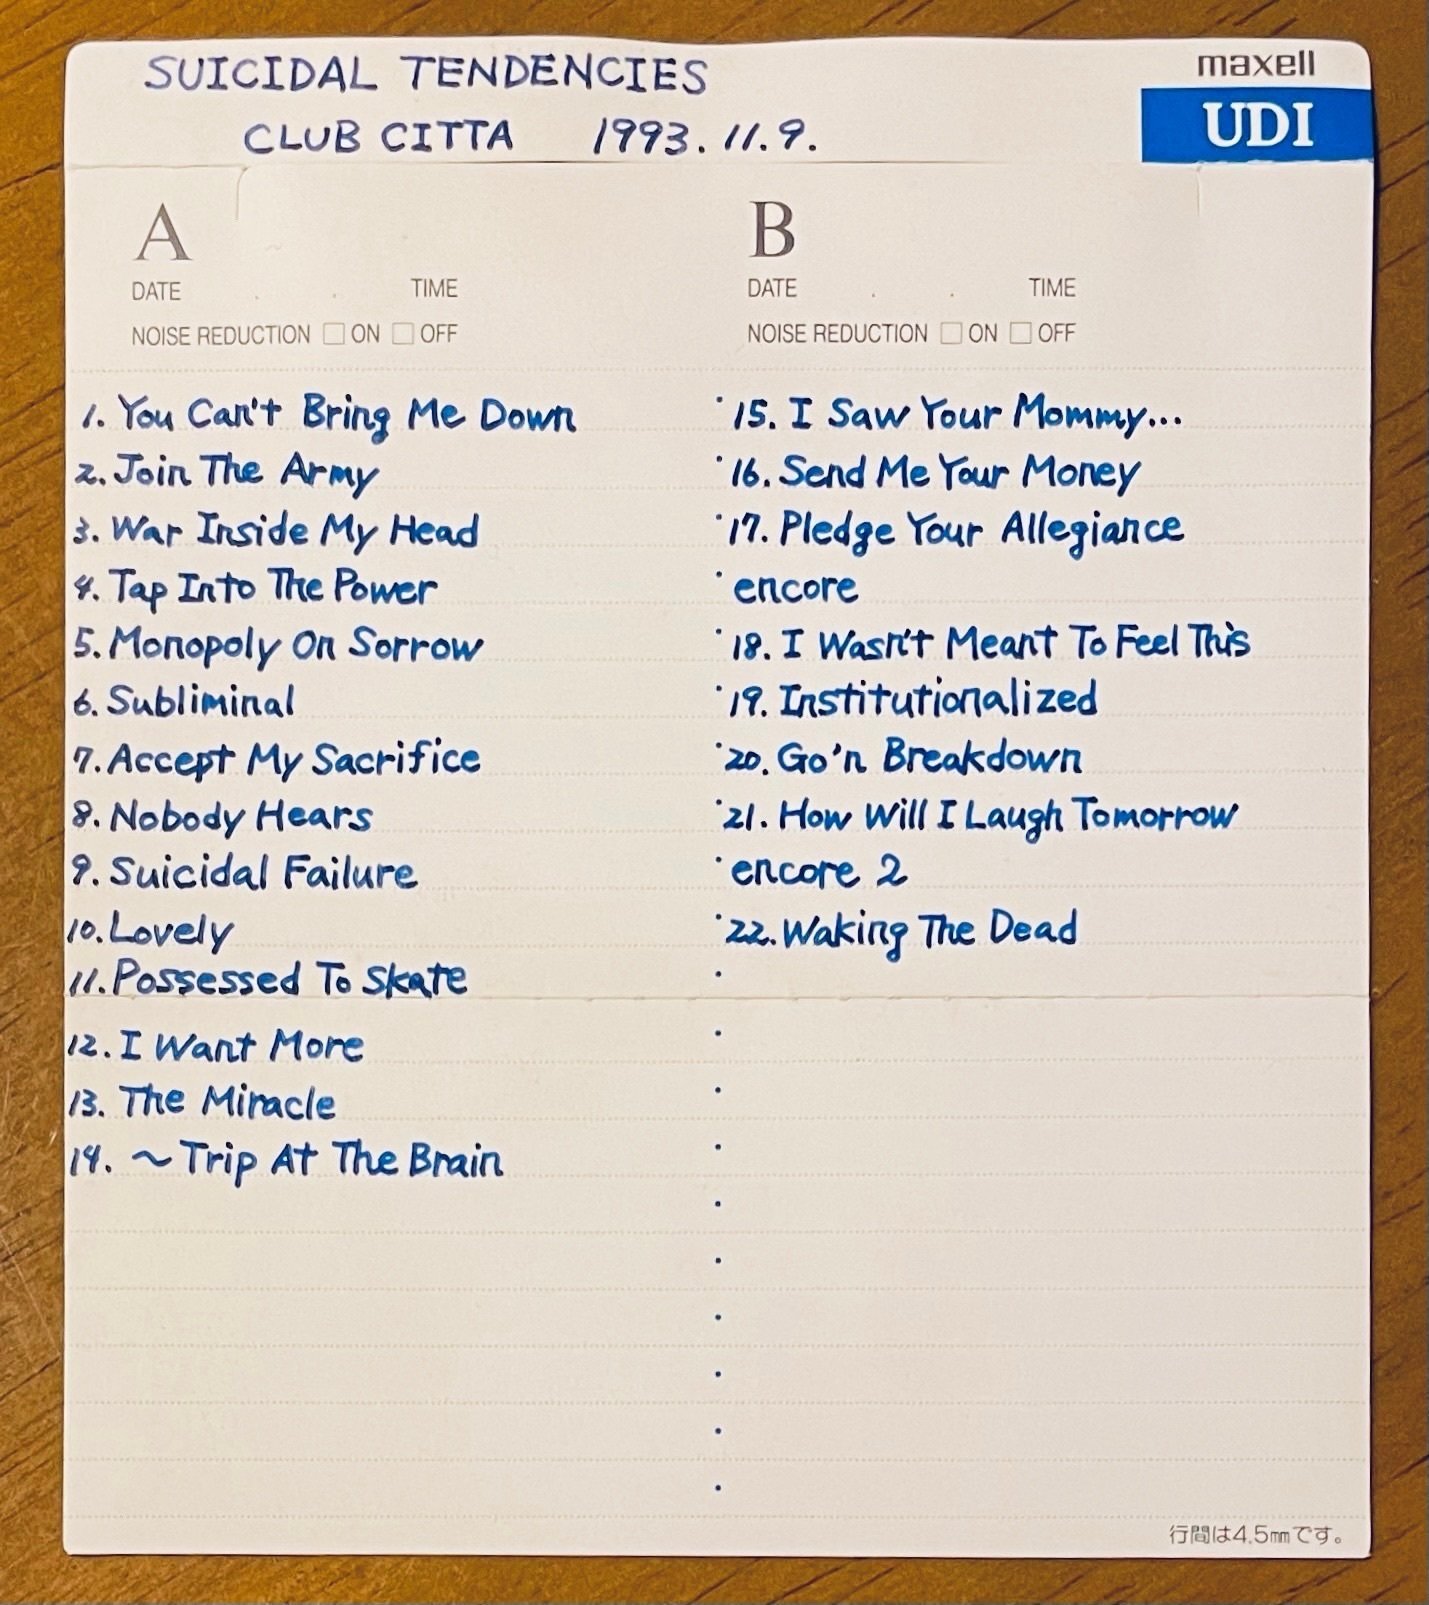 SUICIDAL TENDENCIES
CLUB CITTA 1993.11.9.
maxell
UDI
A
DATE . . TIME
NOISE REDUCTION □ ON □ OFF
1. You Can't Bring Me Down
2. Join The Army
3. War Inside My Head
4. Tap Into The Power
5. Monopoly On Sorrow
6. Subliminal
7. Accept My Sacrifice
8. Nobody Hears
9. Suicidal Failure
10. Lovely
11. Possessed To Skate
12. I Want More
13. The Miracle
14. ~Trip At The Brain
B
DATE . . TIME
NOISE REDUCTION □ ON □ OFF
15. I Saw Your Mommy...
16. Send Me Your Money
17. Pledge Your Allegiance
encore
18. I Wasn't Meant To Feel This
19. Institutionalized
20. Go'n Breakdown
21. How Will I Laugh Tomorrow
encore 2
22. Waking The Dead
行間は4.5㎜です。